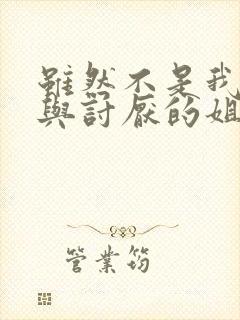 雖然不是我
與討厭的姐
管業筠